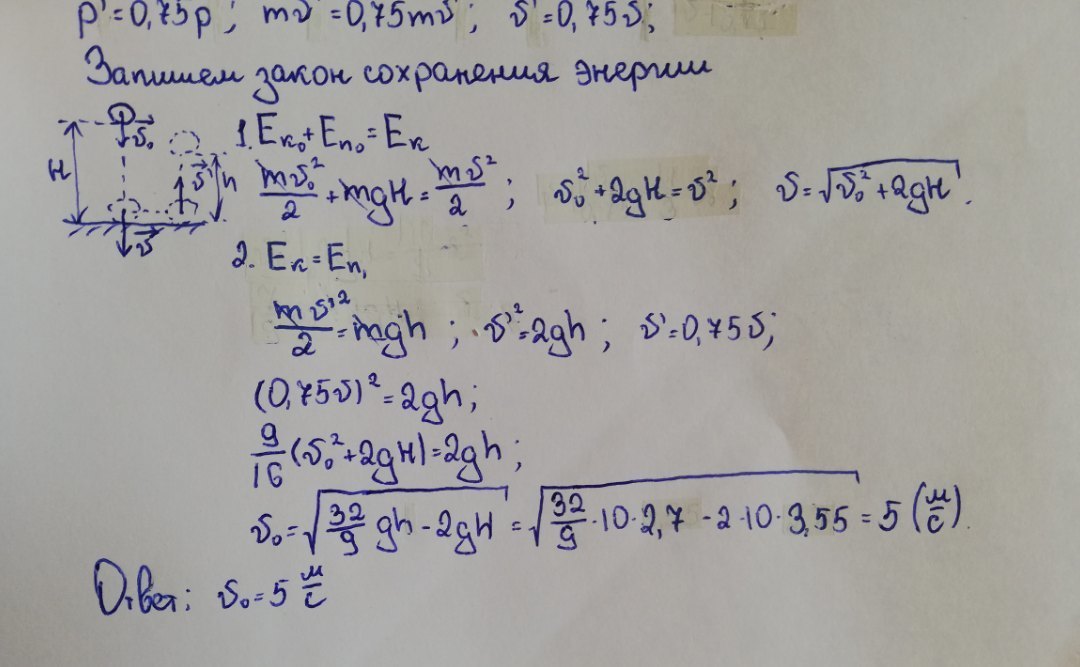 p' = 0,75p; mv' = 0,75mv; v' = 0,75v;
Запишем закон сохранения энергии
H v₀ v' h v
1. Eк₀ + Eп₀ = Eк
mv₀²/2 + mgH = mv²/2; v₀² + 2gH = v²; v = √(v₀² + 2gH).
2. Eк = Eп₁
mv'²/2 = mgh; v'² = 2gh; v' = 0,75v;
(0,75v)² = 2gh;
9/16 (v₀² + 2gH) = 2gh;
v₀ = √(32/9 gh - 2gH) = √(32/9 · 10 · 2,7 - 2 · 10 · 3,55) = 5 (м/с).
Ответ: v₀ = 5 м/с